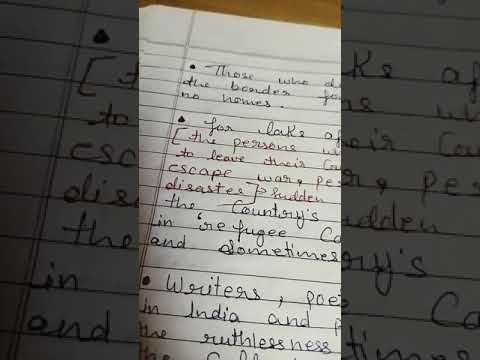 • Those who d
the border fo
no homes.
• for laks af
[ the persons w
to leave their Cou
escape war, per
disaster] Sudden
the Country's
in 'refugee Ca
and sometimes
• Writers, poe
in India and p
the ruthlessness
the